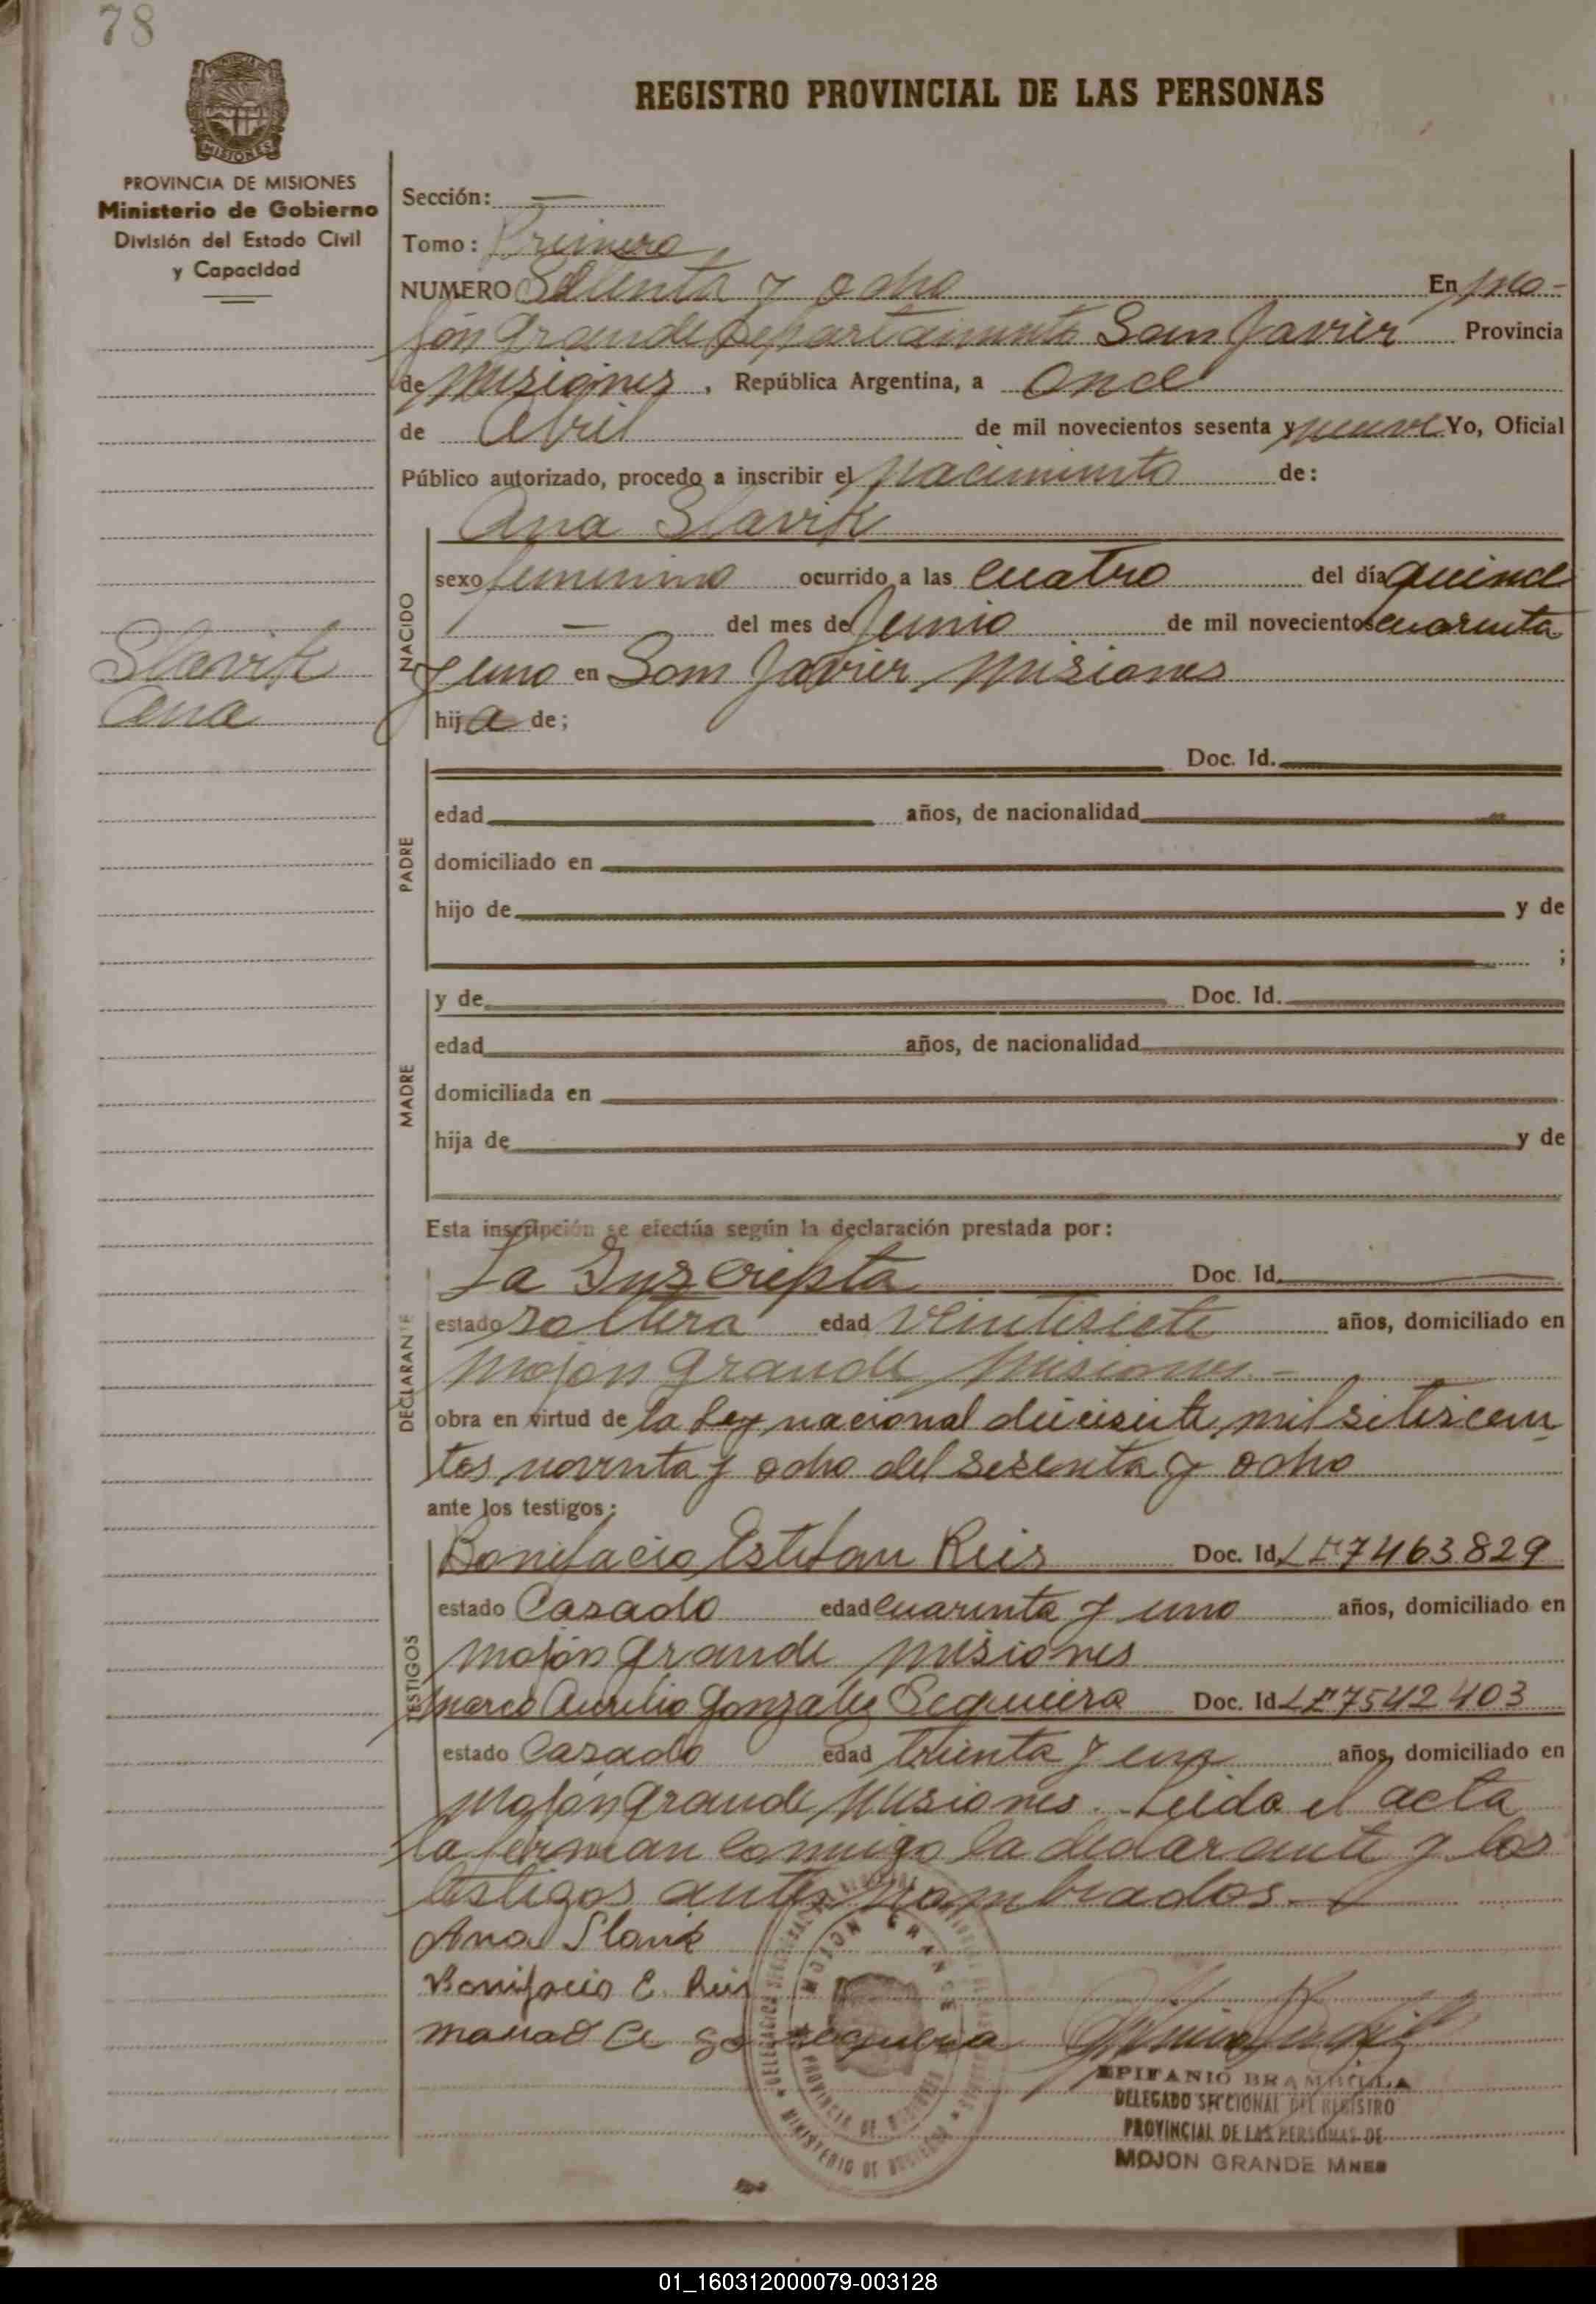 78
PROVINCIA DE MISIONES
Ministerio de Gobierno
División del Estado Civil
y Capacidad
REGISTRO PROVINCIAL DE LAS PERSONAS
Sección: —
Tomo: Primero
NUMERO Setenta y ocho En Mo-
jón Grande Departamento San Javier Provincia
de Misiones, República Argentina, a Once
de Abril de mil novecientos sesenta y nueve Yo, Oficial
Público autorizado, procedo a inscribir el nacimiento de:
Ana Slavik
NACIDO
sexo femenino ocurrido a las cuatro del día quince
— del mes de Junio de mil novecientos cuarenta
y uno en San Javier Misiones
hija de;
Slavik
Ana
PADRE
Doc. Id.
edad años, de nacionalidad
domiciliado en
hijo de y de
;
MADRE
y de Doc. Id.
edad años, de nacionalidad
domiciliada en
hija de y de
Esta inscripción se efectúa según la declaración prestada por:
DECLARANTE
La Inscripta Doc. Id.
estado soltera edad veintisiete años, domiciliado en
Mojón Grande Misiones.-
obra en virtud de la Ley nacional diecisiete mil setescien
tos noventa y ocho del sesenta y ocho
ante los testigos:
TESTIGOS
Bonifacio Esteban Reis Doc. Id LE7463829
estado Casado edad cuarenta y uno años, domiciliado en
Mojón Grande Misiones
Marco Aurelio Gonzalez Sequeira Doc. Id LE7542403
estado Casado edad treinta y años, domiciliado en
Mojón Grande Misiones. Leida el acta
la firman conmigo la declarante y los
testigos antes nombrados.-
Ana Slavik
Bonifacio E. Reis
MOJON GRANDE
PROVINCIA DE MISIONES
MINISTERIO DE GOBIERNO
EPIFANIO BRAMBILLA
DELEGADO SECCIONAL DEL REGISTRO
PROVINCIAL DE LAS PERSONAS DE
MOJON GRANDE MNES
01_160312000079-003128